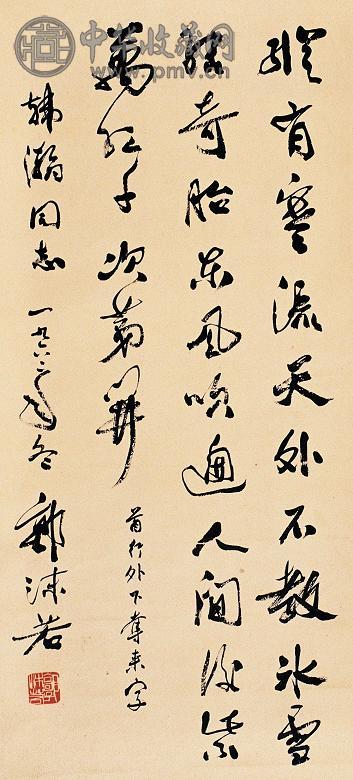 縱有寒流天外不教冰雪
結奇胎东风吹遍人间後紫
萬红千次第开
首行外下夺来字
韩瀚同志 一九六三年冬 郭沫若
中华收藏网
www.pmv.cn